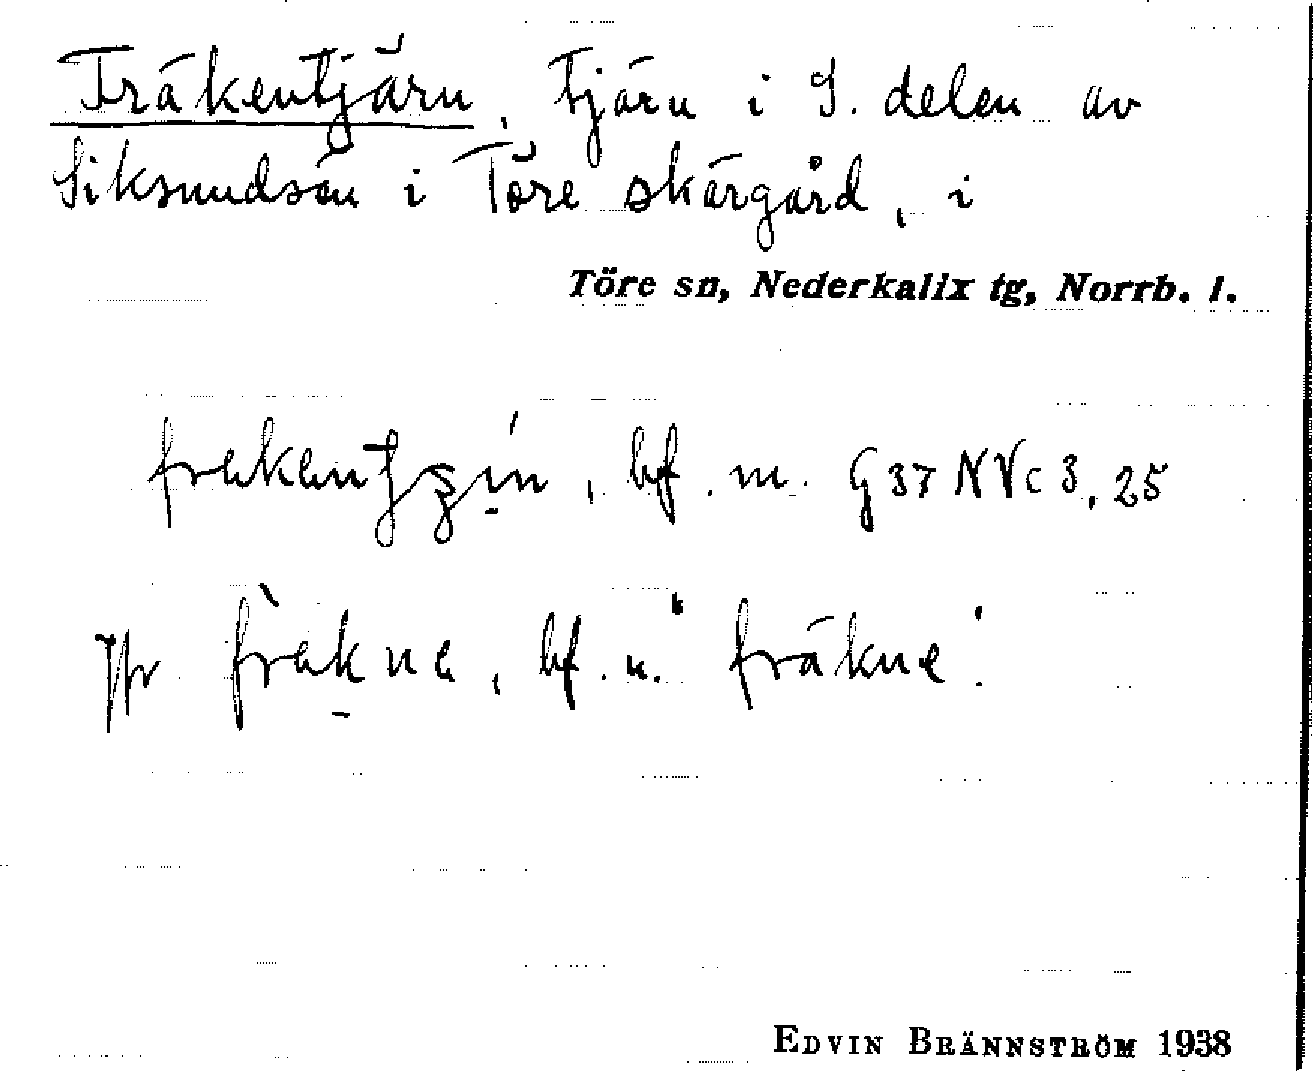 Fräkentjärn, tjärn i S. delen av
Siksundsön i Töre skärgård, i
Töre sn, Nederkalix tg, Norrb. l.
bf. m. G37 NVc 3, 25
Jfr frèkne, bf. n. "fräkne".
EDVIN BRÄNNSTRÖM 1938